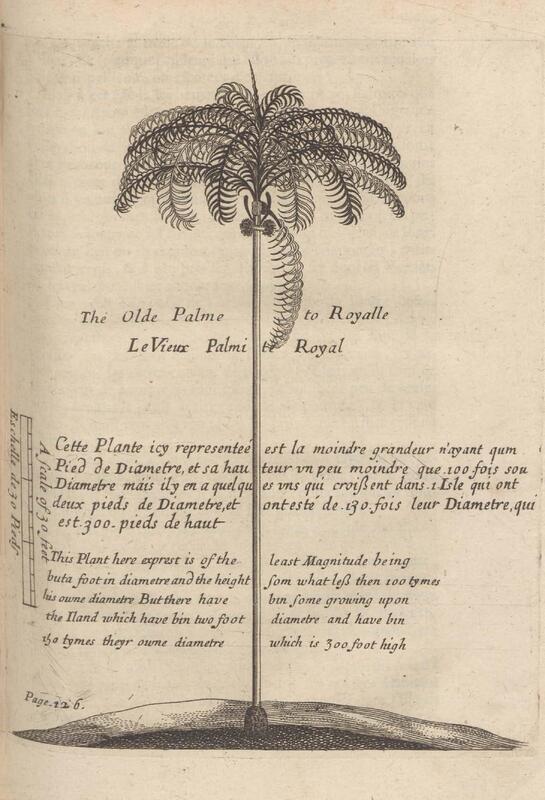 The Olde Palme to Royalle
Le Vieux Palmi te Royal
Cette Plante icy representeé est la moindre grandeur n'ayant qum
Pied de Diametre, et sa hau teur vn peu moindre que .100 fois sou
Diametre mais ily en a quelqu es vns qui croißent dans .1 Isle qui ont
deux pieds de Diametre, et ont esté de .130. fois leur Diametre, qui
est .300. pieds de haut
This Plant here exprest is of the least Magnitude being
buta foot in diametre and the height som what leß then 100 tymes
his owne diametre But there have bin some growing upon
the Iland which have bin two foot diametre and have bin
150 tymes theyr owne diametre which is 300 foot high
A scale of 30 feet
Eschelle de 30 Pieds
Page. 126.